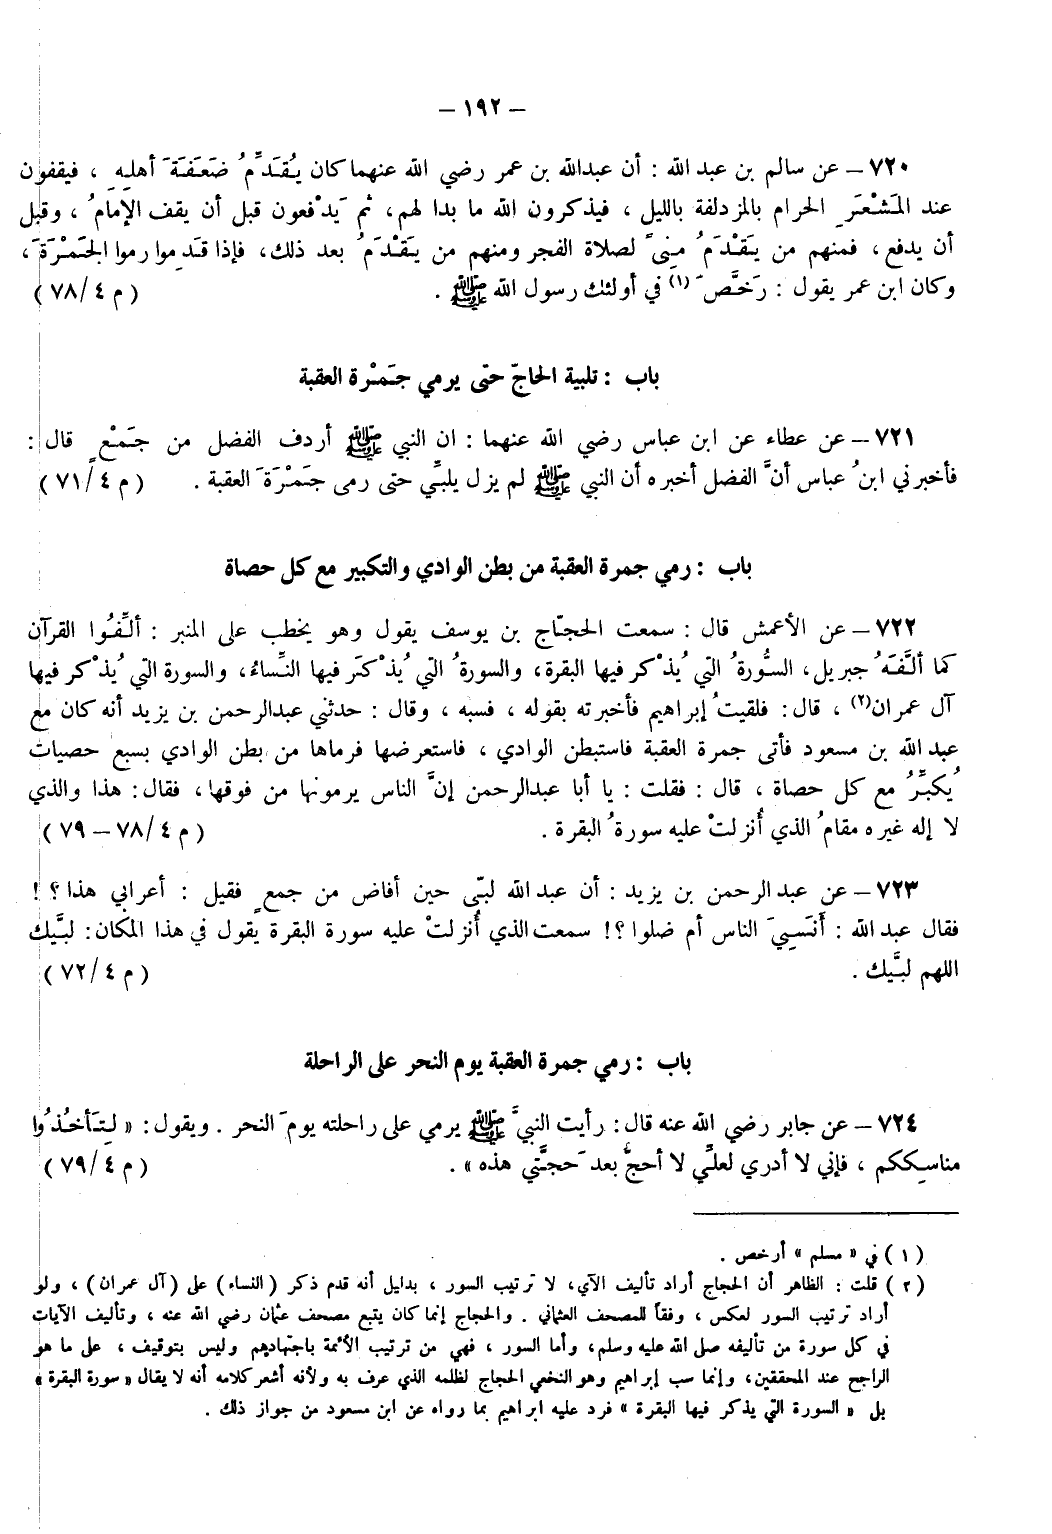 – ١٩٢ –
٧٢٠ – عن سالم بن عبد الله : أن عبدالله بن عمر رضي الله عنهما كان يُقَدِّمُ ضَعَفَةَ أهلِهِ ، فيقفون
عند المَشْعَرِ الحرام بالمزدلفة بالليل ، فيذكرون الله ما بدا لهم، ثم يَدْفعون قبل أن يقف الإمامُ ، وقبل
أن يدفع ، فمنهم من يَقْدَمُ مِنىً لصلاة الفجر ومنهم من يَقْدَمُ بعد ذلك، فإذا قَدِموا رموا الجَمْرَةَ ،
وكان ابن عمر يقول : رَخَّصَ (١) في أولئك رسول الله ﷺ . ( م ٤/٧٨ )
باب : تلبية الحاجّ حتّى يرمي جَمْرة العقبة
٧٢١ – عن عطاء عن ابن عباس رضي الله عنهما : ان النبي ﷺ أردف الفضل من جَمْعٍ قال :
فأخبرني ابنُ عباس أنَّ الفضل أخبره أن النبي ﷺ لم يزل يلبِّي حتى رمى جَمْرَةَ العقبة . ( م ٤/٧١ )
باب : رمي جمرة العقبة من بطن الوادي والتكبير مع كل حصاة
٧٢٢ – عن الأعمش قال : سمعت الحجّاج بن يوسف يقول وهو يخطب على المنبر : ألِّفُوا القرآن
كما ألَّفَهُ جبريل، السُّورةُ التي يُذْكر فيها البقرة، والسورةُ التي يُذْكَر فيها النِّساءُ، والسورة التي يُذْكر فيها
آل عمران(٢) ، قال: فلقيتُ إبراهيم فأخبرته بقوله ، فسبه ، وقال : حدثني عبدالرحمن بن يزيد أنه كان مع
عبد الله بن مسعود فأتى جمرة العقبة فاستبطن الوادي ، فاستعرضها فرماها من بطن الوادي بسبع حصيات
يُكبِّرُ مع كل حصاة ، قال : فقلت : يا أبا عبدالرحمن إنَّ الناس يرمونها من فوقها، فقال: هذا والذي
لا إله غيره مقامُ الذي أُنزلتْ عليه سورةُ البقرة . ( م ٤/٧٨ – ٧٩ )
٧٢٣ – عن عبد الرحمن بن يزيد : أن عبد الله لبّى حين أفاض من جمعٍ فقيل : أعرابي هذا ؟ !
فقال عبد الله : أَنَسِيَ الناس أم ضلوا ؟! سمعت الذي أُنزلتْ عليه سورة البقرة يقول في هذا المكان: لبَّيك
اللهم لبَّيك . ( م ٤/٧٢ )
باب : رمي جمرة العقبة يوم النحر على الراحلة
٧٢٤ – عن جابر رضي الله عنه قال: رأيت النبيَّ ﷺ يرمي على راحلته يومَ النحر . ويقول: « لِتَأخُذُوا
مناسِككم ، فإني لا أدري لعلِّي لا أحجُّ بعد حَجَّتي هذه » . ( م ٤/٧٩ )
( ١ ) في « مسلم » أرخص .
( ٢ ) قلت : الظاهر أن الحجاج أراد تأليف الآي، لا ترتيب السور ، بدليل أنه قدم ذكر (النساء) على (آل عمران) ، ولو
أراد ترتيب السور لعكس ، وفقاً للمصحف العثماني . والحجاج إنما كان يتبع مصحف عثمان رضي الله عنه ، وتأليف الآيات
في كل سورة من تأليفه صلى الله عليه وسلم، وأما السور ، فهي من ترتيب الأئمة باجتهادهم وليس بتوقيف ، على ما هو
الراجح عند المحققين، وإنما سب إبراهيم وهو النخعي الحجاج لظلمه الذي عرف به ولأنه أشعر كلامه أنه لا يقال « سورة البقرة »
بل « السورة التي يذكر فيها البقرة » فرد عليه ابراهيم بما رواه عن ابن مسعود من جواز ذلك .